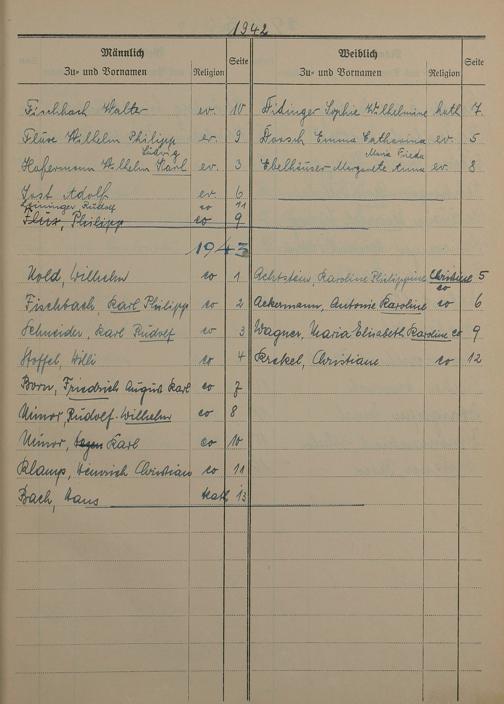 1942
Männlich
Zu- und Vornamen Religion Seite
Fischbach Walter ev. 10
Wilhelm Philipp ev. 9
Ludwig
Hofermann Wilhelm Karl ev. 3
Jost Adolf ev. 6
Rudolf ev 11
Philipp ev 9
Weiblich
Zu- und Vornamen Religion Seite
Fidinger Sophie Wilhelmine kath 7
Emma Catharina ev. 5
Maria Frieda
Ebelhäuser Margarete Anna ev. 8
1943
Nold, Wilhelm ev 1
Fischbach, Karl Philipp ev 2
Schneider, Karl Rudolf ev 3
Stoffel, Willi ev 4
Born, Friedrich August Karl ev 7
Minor, Rudolf Wilhelm ev 8
Minor, Karl ev 10
Klamp, Heinrich Christian ev 11
Bach, Hans kath 13
Achtstein, Karoline Philippine Christiane 5
ev
Ackermann, Antonie Karoline ev 6
Wagner, Maria Elisabeth Karoline ev 9
Krekel, Christiane ev 12